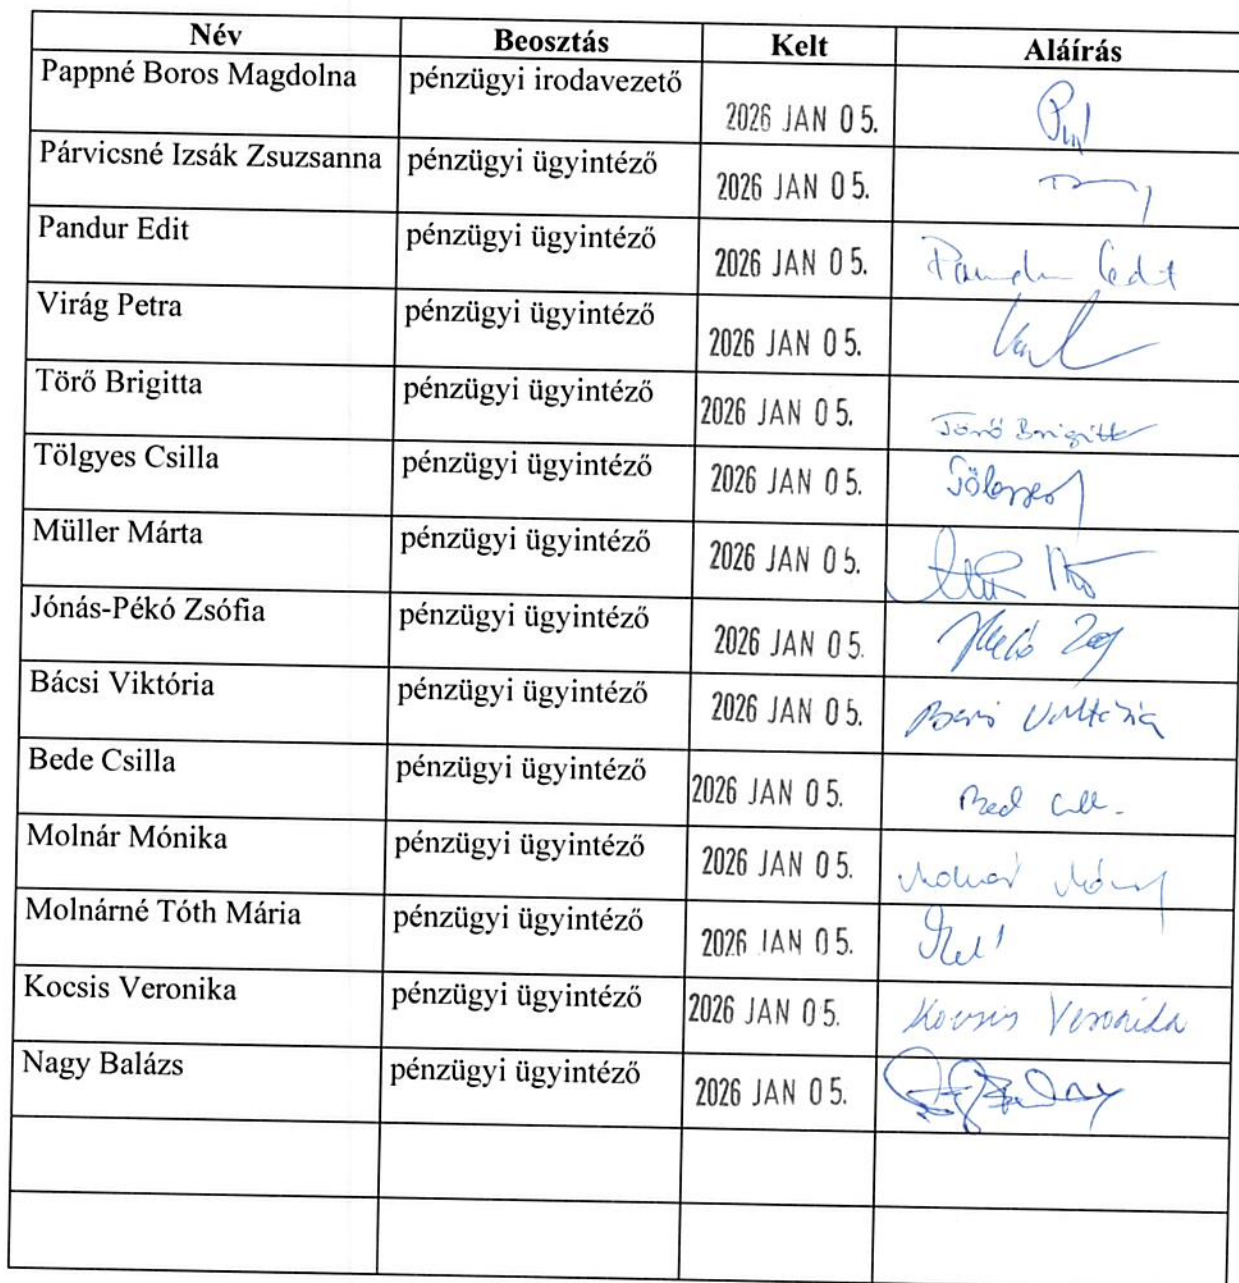 Név Beosztás Kelt Aláírás
Pappné Boros Magdolna pénzügyi irodavezető 2026 JAN 05.
Párvicsné Izsák Zsuzsanna pénzügyi ügyintéző 2026 JAN 05.
Pandur Edit pénzügyi ügyintéző 2026 JAN 05. Pandur Edit
Virág Petra pénzügyi ügyintéző 2026 JAN 05.
Törő Brigitta pénzügyi ügyintéző 2026 JAN 05. Törő Brigitta
Tölgyes Csilla pénzügyi ügyintéző 2026 JAN 05.
Müller Márta pénzügyi ügyintéző 2026 JAN 05.
Jónás-Pékó Zsófia pénzügyi ügyintéző 2026 JAN 05.
Bácsi Viktória pénzügyi ügyintéző 2026 JAN 05. Bácsi Viktória
Bede Csilla pénzügyi ügyintéző 2026 JAN 05.
Molnár Mónika pénzügyi ügyintéző 2026 JAN 05.
Molnárné Tóth Mária pénzügyi ügyintéző 2026 JAN 05.
Kocsis Veronika pénzügyi ügyintéző 2026 JAN 05. Kocsis Veronika
Nagy Balázs pénzügyi ügyintéző 2026 JAN 05.